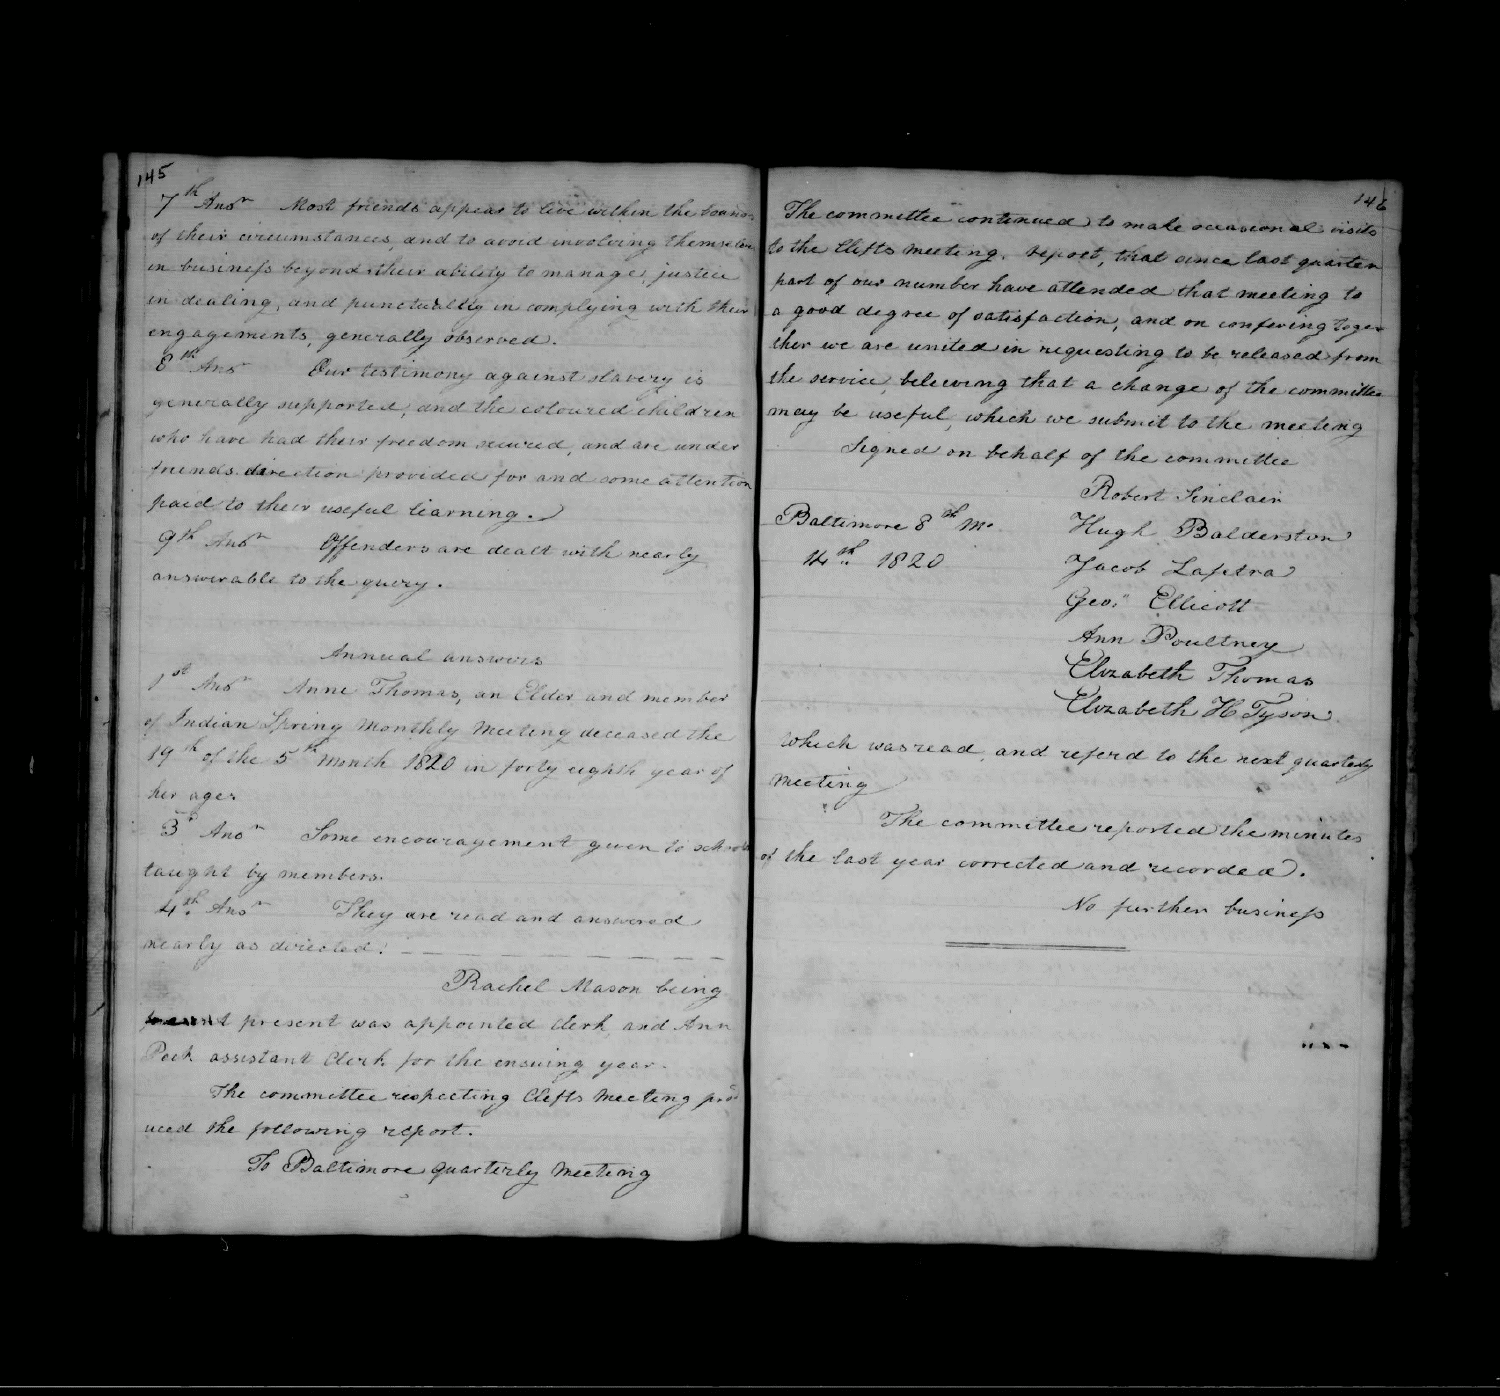 145
7th Ansr Most friends appear to live within the bounds
of their circumstances, and to avoid involving themselves
in business beyond their ability to manage, justice
in dealing, and punctuality in complying with their
engagements, generally observed.
8th Ansr Our testimony against slavery is
generally supported, and the coloured children
who have had their freedom secured, and are under
friends direction provided for and some attention
paid to their useful learning.
9th Ansr Offenders are dealt with nearly
answerable to the query.
Annual answers
1st Ansr Anne Thomas, an Elder and member
of Indian Spring Monthly Meeting deceased the
19th of the 5th Month 1820 in forty eighth year of
her age.
3d Ansr Some encouragement given to schools
taught by members.
4th Ansr They are read and answered
nearly as directed.
Rachel Mason being
present was appointed Clerk and Ann
Peck assistant Clerk for the ensuing year.
The committee respecting Clifts Meeting prod
uced the following report.
To Baltimore quarterly Meeting
146
The committee continued to make occasional visits
to the Clifts Meeting, report, that since last quarter
part of our number have attended that meeting to
a good degree of satisfaction, and on confering toge
ther we are united in requesting to be released from
the service, believing that a change of the committee
may be useful, which we submit to the meeting
Signed on behalf of the committee
Robert Sinclair
Baltimore 8th Mo. Hugh Balderston
14th 1820 Jacob Lafetra
Geo. Ellicott
Ann Poultney
Elizabeth Thomas
Elizabeth H Tyson
Which was read, and referd to the next quarterly
Meeting
The committee reported the minutes
of the last year corrected and recorded.
No further business